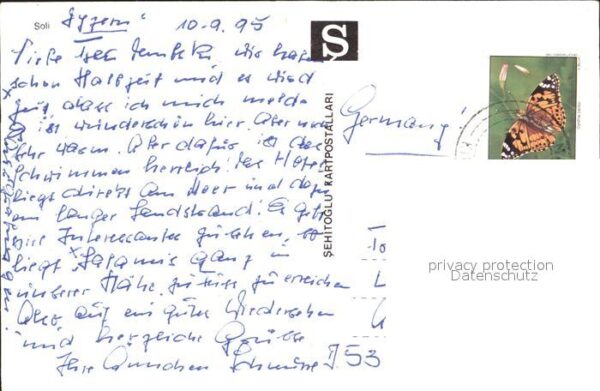 Soli "Zypern" 10.9.95
Liebe wir haben
schon Halbzeit und es wird
Zeit, dass ich mich melde
Es ist wunderschön hier. Aber auch
sehr warm. Aber dafür ist das
Schwimmen herrlich! Das Hotel
liegt direkt am Meer und dazu
ein langer Sandstrand! Es gibt
viel Interessantes zu sehen, so
liegt Salamis ganz in
unserer Nähe, zu Fuß zu erreichen
Also auf ein gutes Wiedersehen
und herzliche Grüße
Ihre
Germany!
Ş
ŞEHİTOĞLU KARTPOSTALLARI
To
privacy protection
Datenschutz
J 53